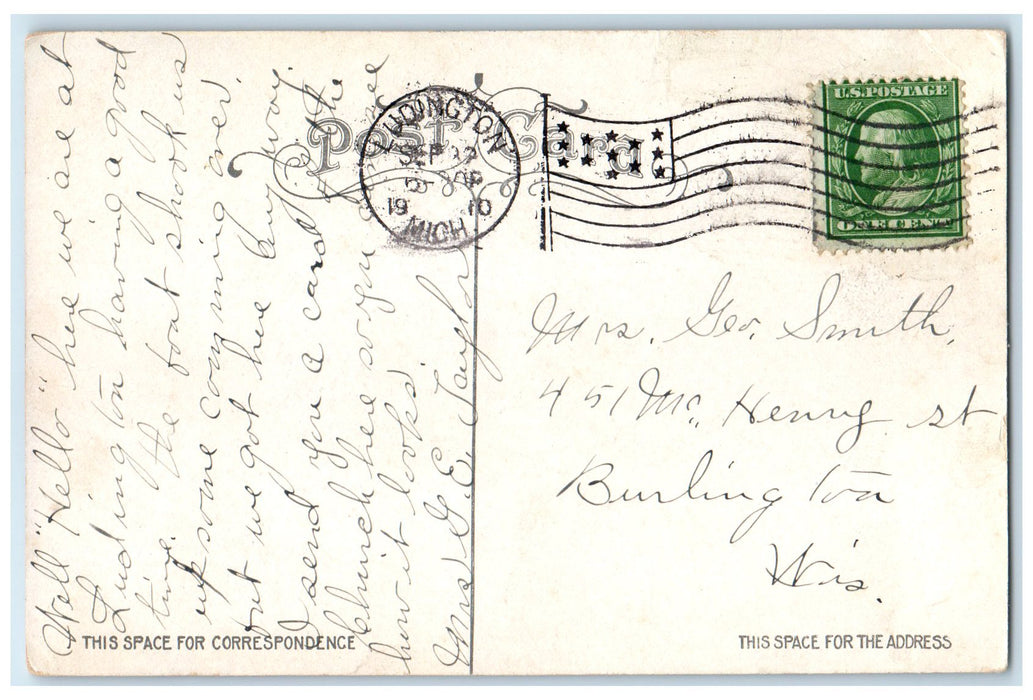 Well "Hello" here we are at
Ludington having a good
time. the boat shook us
up some comming over.
but we got here any way.
I send you a card of the
Church here so you see
how it looks
Mrs G. E. Taylor
Post Card
LUDINGTON
SEP
19 10
MICH
U.S. POSTAGE
ONE CENT
Mrs. Geo. Smith,
451 Mc. Henry st
Burlington
Wis.
THIS SPACE FOR CORRESPONDENCE
THIS SPACE FOR THE ADDRESS